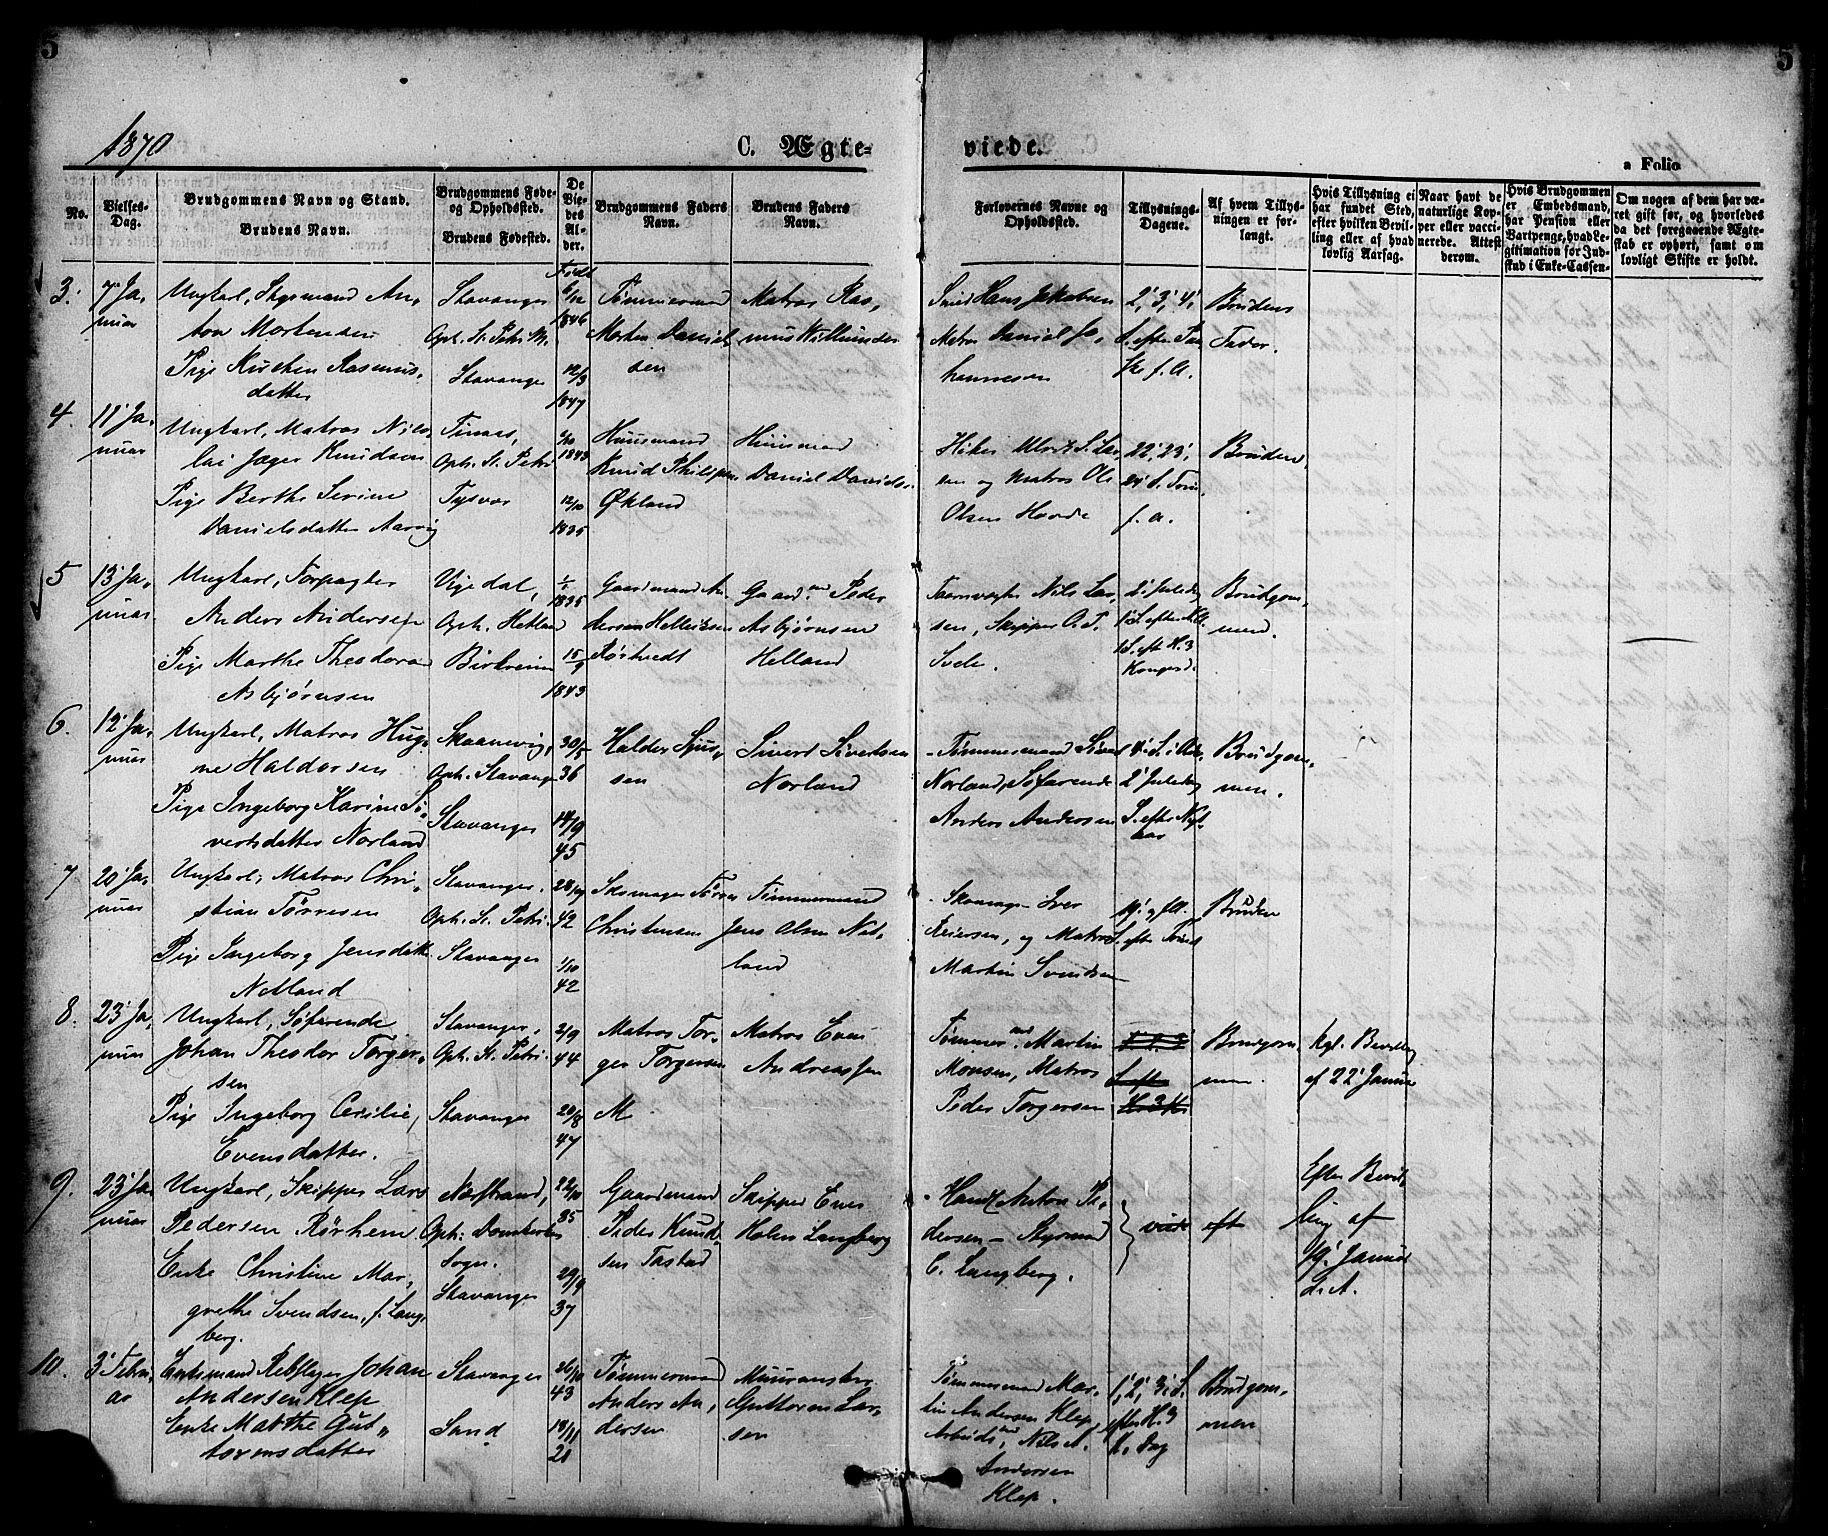 5
5
1870
C. Ægte-
viede.
a Folio
No.
Vielses-
Dag.
Brudgommens Navn og Stand.
Brudens Navn.
Brudgommens Føde-
og Opholdssted.
Brudens Fødested.
De
Vie-
des
Al-
der.
Brudgommens Faders
Navn.
Brudens Faders
Navn.
Forlovernes Navne og
Opholdssted.
Tillysnings-
Dagene.
Af hvem Tillys-
ningen er for-
langt.
Hvis Tillysning ei
har fundet Sted,
efter hvilken Bevil-
ling eller af hvad
lovlig Aarsag.
Naar havt de
naturlige Kop-
per eller vacci-
nerede. Attest
derom.
Hvis Brudgommen
er Embedsmand,
har Pension eller
Vartpenge, hvad Le-
gitimation for Ind-
skud i Enke-Cassen-
Om nogen af dem har væ-
ret gift før, og hvorledes
da det foregaaende Ægte-
skab er ophørt, samt om
lovligt Skifte er holdt.
3. 7' Ja-
nuar
Ungkarl, Styrmand An-
ton Mortensen
Pige Kirsten Rasmus-
datter
Stavanger
Oph. St. Petri M.
Stavanger
Født
6/12
1846
12/3
1847
Tømmermand
Morten Daniel-
sen
Matros Ras-
mus Willumsen
Smed Hans Jakobsen
Matros Daniel Jo-
hannesen
2', 3', 4',
S. efter
f. A.
Brudens
Fader.
4. 11' Ja-
nuar
Ungkarl, Matros Nico-
lai Jæger Knudsen
Pige Berthe Serine
Danielsdatter Aarvig
Oph. St. Petri
Tysvær
1843
12/10
1835
Huusmand
Knud Philipsen
Økland
Huusmand
Daniel Davids-
L. Lar-
sen og Matros Ole
Olsen Hovde
22', 23',
24' S. Trin.
f. A.
Bruden
5 13' Ja-
nuar
Ungkarl, Forpagter
Anders Andersen
Pige Marthe Theodora
Asbjørnsen
Vigedal,
Oph. Hetland
Birkreim
1/1
1835
15/9
1843
Gaardmand An-
dersen Helliksen
Røstvedt
Gaardmd Peder
Asbjørnsen
Helland
Taarnvægter Nils Lar-
sen, Skipper O. T.
Svele.
2' Juledag
1' S. efter
1' S. eft. H. 3
Kongersd.
Brudgom-
men.
6. 12' Ja-
nuar
Ungkarl, Matros Hug-
ne Haldorsen
Pige Ingeborg Karine Si-
vertsdatter Norland
Skaanevig,
Oph. Stavanger
Stavanger
30/5
36
14/9
45
Haldor Sjur-
sen
Sivert Sivertsen
Norland
Tømmermand Sivert
Norland, Søfarende
Anders Andersen
4' S. i Adv.
2' Juledag
S. efter Nyt-
aar
Brudgom-
men.
7 20' Ja-
nuar
Ungkarl, Matros Chri-
stian Tørresen
Pige Ingeborg Jensdatt.
Netland
Stavanger.
Oph. St. Petri.
Stavanger
28/10
42
1/10
42
Skomager Tørres
Christensen
Tømmermand
Jens Olsen Net-
land
Skomager Iver
Reiersen, og Matros
Martin Svendsen
19' og
S. efter Trinit.
Bruden
8. 23' Ja-
nuar
Ungkarl, Søfarende
Johan Theodor Torger-
sen
Pige Ingeborg Cecilie,
Evensdatter.
Stavanger,
Oph. St. Petri.
Stavanger
2/9
44
20/8
47
Matros Tor-
ger Torgersen
M
Matros Even
Andreassen
Tømmermd Martin
Monsen, Matros
Peder Torgersen
Brudgom-
men.
Kgl. Bevilling
af 22' Januar
9. 23' Ja-
nuar
Ungkarl, Skipper Lars
Pedersen Rørheim
Enke Christine Mar-
grethe Svendsen, f. Lang-
berg.
Nærstrand,
Oph. Domkirkens
Sogn.
Stavanger
22/10
35
29/9
37
Gaardmand
Peder Knud-
sen Tastad
Skipper Enes
Holm Langberg
Handl. Anton Pe-
dersen - Styrmand
E. Langberg.
Efter Bevil-
ling af
19' Januar
d. A.
10. 3' Febru-
ar
Enkemand Rebslager Johan
Andersen Klep
Enke Marthe Gut-
tormsdatter
Stavanger
Sand
26/10
43
18/11
28
Tømmermand
Anders An-
dersen
Muurmester
Guttorm Lar-
sen
Tømmermand Mar-
tin Andersen Klep,
Arbeidsmd Nils A.
Andersen
Klep.
1', 2', 3' S.
efter H. 3
K. Dag
Brudgom-
men